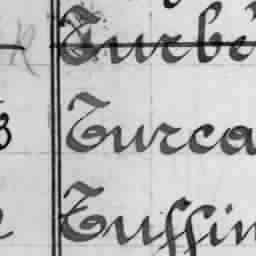 Turbe
Turca
Tuffin